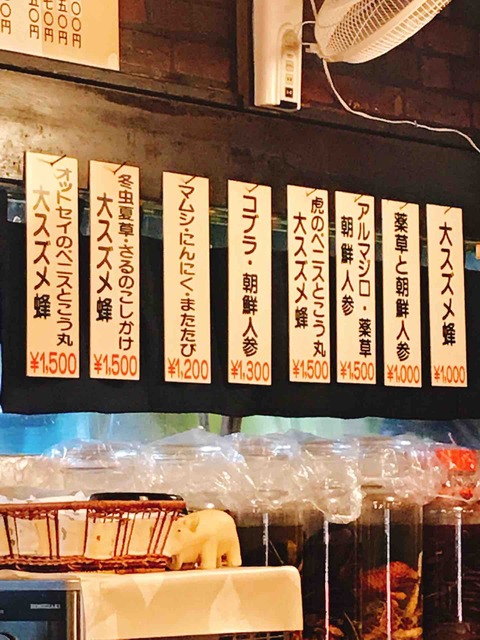 大スズメ蜂
¥1,000
薬草と朝鮮人参
¥1,000
アルマジロ・薬草
朝鮮人参
¥1,500
虎のペニスとこう丸
大スズメ蜂
¥1,500
コブラ・朝鮮人参
¥1,300
マムシ・にんにく・またたび
¥1,200
冬虫夏草・さるのこしかけ
大スズメ蜂
¥1,500
オットセイのペニスとこう丸
大スズメ蜂
¥1,500